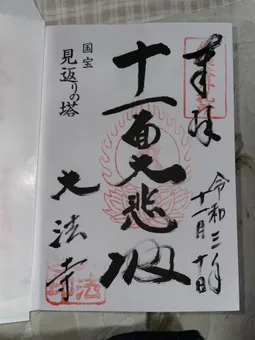 奉拝
令和三年
十一月十日
十一面大悲殿
国宝
見返りの塔
大法寺